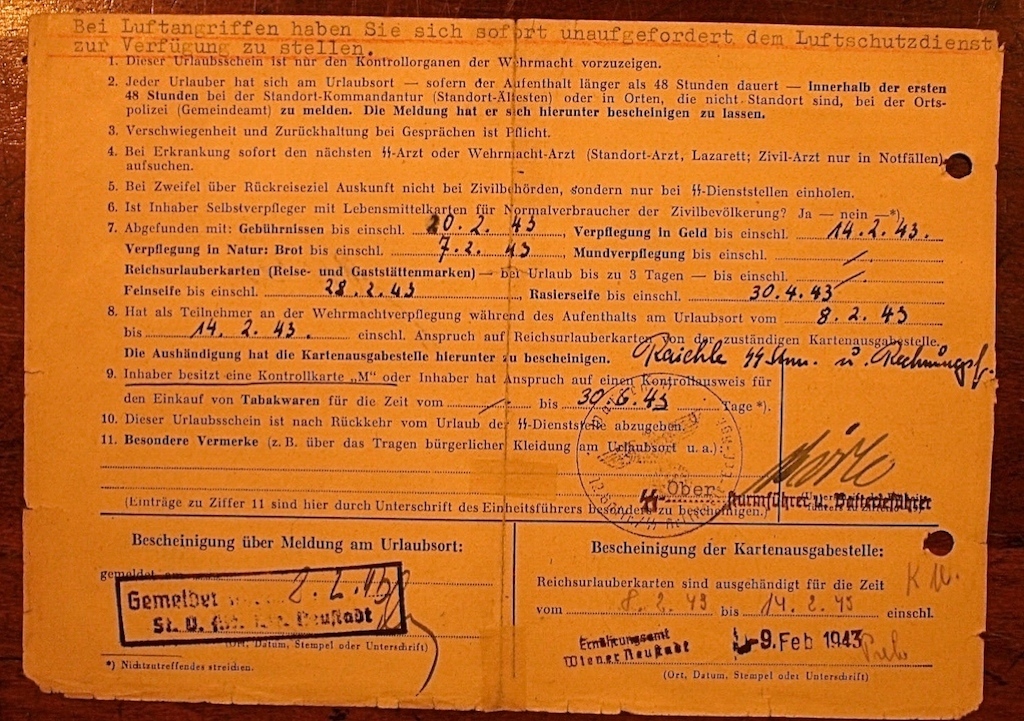 Bei Luftangriffen haben Sie sich sofort unaufgefordert dem Luftschutzdienst
zur Verfügung zu stellen.
1. Dieser Urlaubsschein ist nur den Kontrollorganen der Wehrmacht vorzuzeigen.
2. Jeder Urlauber hat sich am Urlaubsort — sofern der Aufenthalt länger als 48 Stunden dauert — innerhalb der ersten
48 Stunden bei der Standort-Kommandantur (Standort-Ältesten) oder in Orten, die nicht Standort sind, bei der Orts-
polizei (Gemeindeamt) zu melden. Die Meldung hat er sich hierunter bescheinigen zu lassen.
3. Verschwiegenheit und Zurückhaltung bei Gesprächen ist Pflicht.
4. Bei Erkrankung sofort den nächsten ᛋᛋ-Arzt oder Wehrmacht-Arzt (Standort-Arzt, Lazarett; Zivil-Arzt nur in Notfällen)
aufsuchen.
5. Bei Zweifel über Rückreiseziel Auskunft nicht bei Zivilbehörden, sondern nur bei ᛋᛋ-Dienststellen einholen.
6. Ist Inhaber Selbstverpfleger mit Lebensmittelkarten für Normalverbraucher der Zivilbevölkerung? Ja — nein —*)
7. Abgefunden mit: Gebührnissen bis einschl. 20.2.43, Verpflegung in Geld bis einschl. 14.2.43.
Verpflegung in Natur: Brot bis einschl. 7.2.43, Mundverpflegung bis einschl. /.
Reichsurlauberkarten (Reise- und Gaststättenmarken) — bei Urlaub bis zu 3 Tagen — bis einschl. /.
Feinseife bis einschl. 28.2.43, Rasierseife bis einschl. 30.4.43
8. Hat als Teilnehmer an der Wehrmachtverpflegung während des Aufenthalts am Urlaubsort vom 8.2.43
bis 14.2.43. einschl. Anspruch auf Reichsurlauberkarten von der zuständigen Kartenausgabestelle.
Die Aushändigung hat die Kartenausgabestelle hierunter zu bescheinigen. Raichle ᛋᛋ u. Rechnungsf.
9. Inhaber besitzt eine Kontrollkarte „M" oder Inhaber hat Anspruch auf einen Kontrollausweis für
den Einkauf von Tabakwaren für die Zeit vom /. bis 30.6.43 Tage*).
10. Dieser Urlaubsschein ist nach Rückkehr vom Urlaub der ᛋᛋ-Dienststelle abzugeben.
11. Besondere Vermerke (z. B. über das Tragen bürgerlicher Kleidung am Urlaubsort u. a.):
ᛋᛋ-Obersturmführer u. Batterieführer
(Einträge zu Ziffer 11 sind hier durch Unterschrift des Einheitsführers besonders zu bescheinigen.)
Bescheinigung über Meldung am Urlaubsort:
gemeldet am
Gemeldet 8.2.
St. O. Neustadt
(Ort, Datum, Stempel oder Unterschrift)
*) Nichtzutreffendes streichen.
Bescheinigung der Kartenausgabestelle:
Reichsurlauberkarten sind ausgehändigt für die Zeit
vom 8.2.43 bis 14.2.43 einschl.
Ernährungsamt
Wiener Neustadt
-9. Feb 1943
(Ort, Datum, Stempel oder Unterschrift)